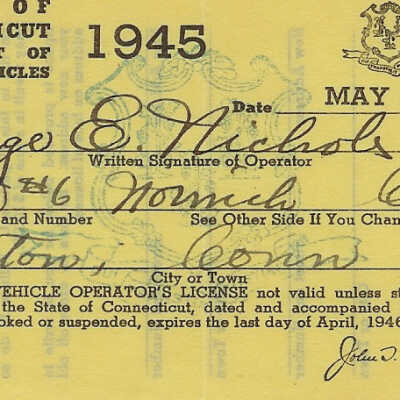 OF
ICUT
T OF
HICLES
1945
Date MAY
ge E. Nichols
Written Signature of Operator
#6 Norwich
and Number See Other Side If You Chan
tow, Conn
City or Town
VEHICLE OPERATOR'S LICENSE not valid unless st
the State of Connecticut, dated and accompanied
oked or suspended, expires the last day of April, 1946
John T.